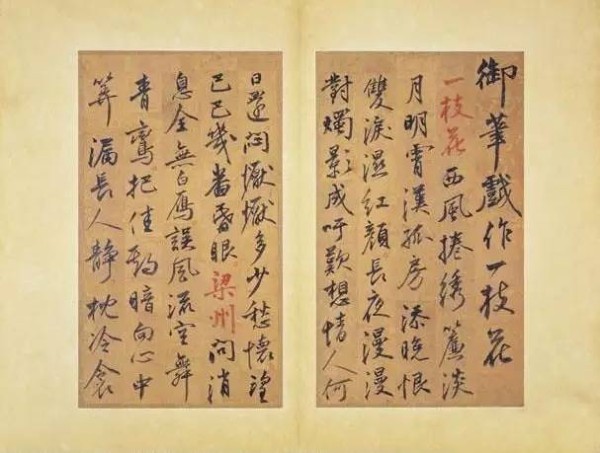 御筆戲作一枝花
一枝花西風捲綉簾淡
月明霄漢孤房添晚恨
雙淚濕紅顏長夜漫漫
對燭影成吁歎想情人何
日還悶懨懨多少愁懷望
巴巴幾番昏眼梁州问消
息全無白鴈誤風流空舞
青鸞把佳期暗向心中
筭漏長人靜枕冷衾